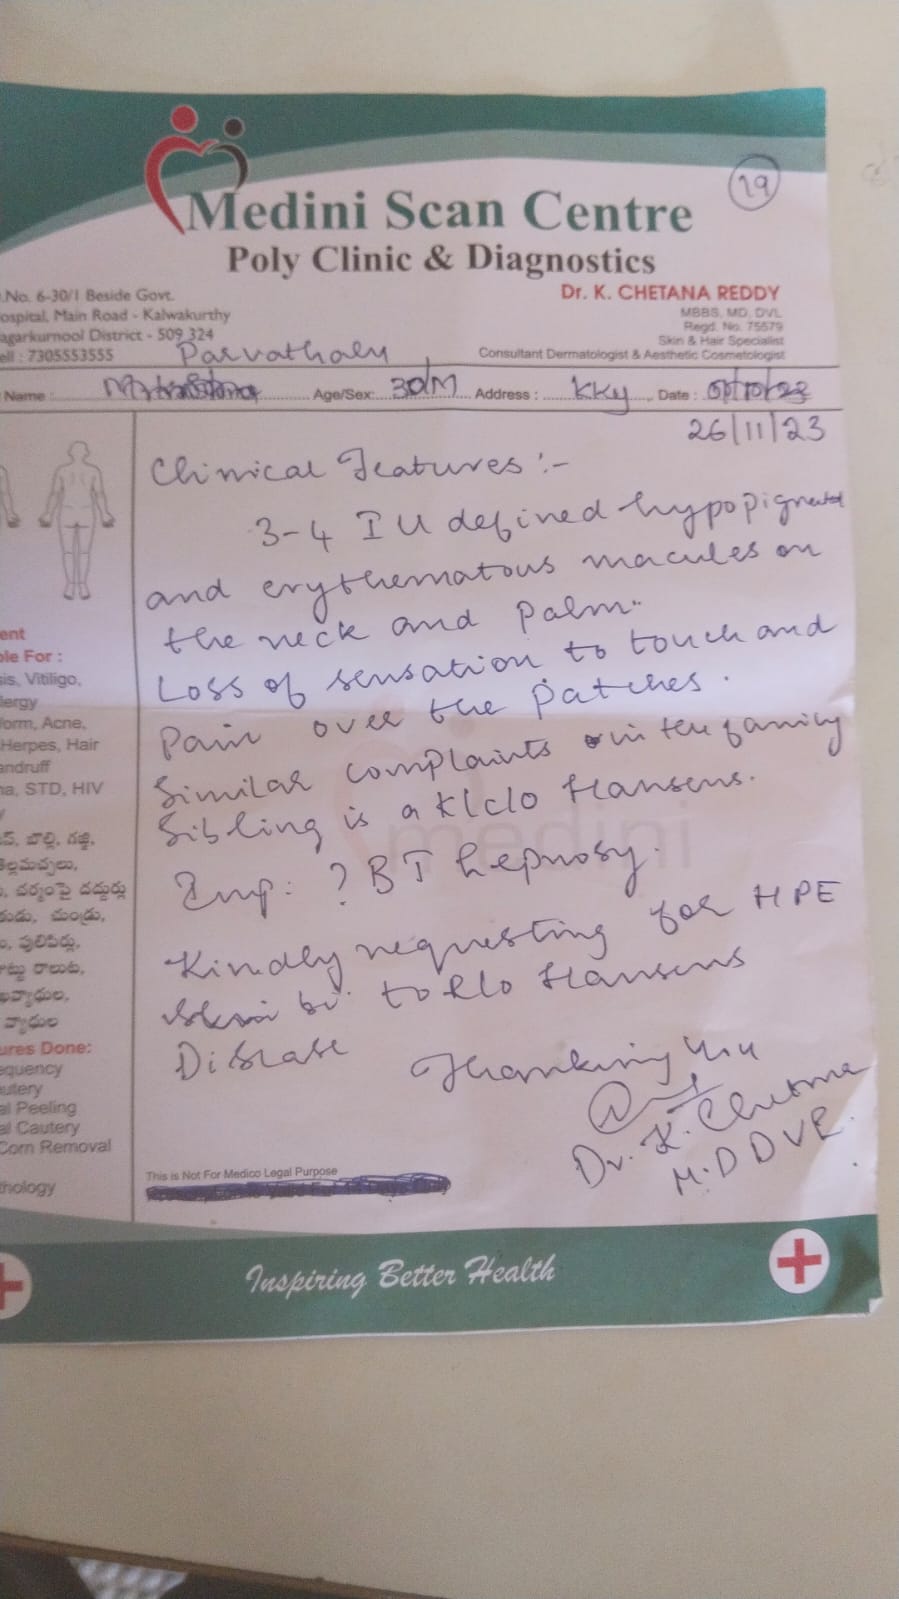 19
Medini Scan Centre
Poly Clinic & Diagnostics
.No. 6-30/1 Beside Govt.
ospital, Main Road - Kalwakurthy
agarkurnool District - 509 324
ell : 7305553555
Dr. K. CHETANA REDDY
MBBS, MD, DVL
Regd. No. 75579
Skin & Hair Specialist
Consultant Dermatologist & Aesthetic Cosmetologist
Name : Age/Sex: 30/M Address : KKY Date :
26/11/23
Clinical Features :-
3-4 Ill defined hypopigmented
and erythematous macules on
the neck and palm.
Loss of sensation to touch and
Pain over the patches.
Similar complaints in the family
Sibling is a K/c/o Hansens.
Imp: ? BT Leprosy.
Kindly requesting for HPE
skin bi. to R/o Hansens
Disease
Thanking you
Dr. K. Chetana
M.D DVL
ent
ble For :
sis, Vitiligo,
lergy
form, Acne,
Herpes, Hair
andruff
na, STD, HIV
బొల్లి, గజ్జి,
తెల్లమచ్చలు,
చర్మంపై దద్దుర్లు
చుండ్రు,
పులిపిర్లు,
రాలుట,
వ్యాధుల
ures Done:
equency
utery
al Peeling
al Cautery
Corn Removal
thology
This is Not For Medico Legal Purpose
medini
Inspiring Better Health